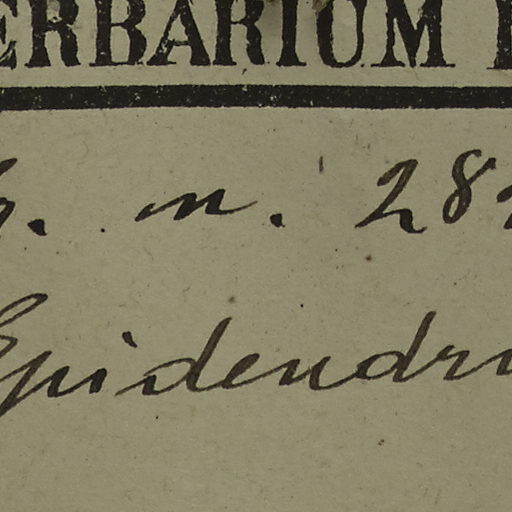 ERBARIUM
. n. 28
Epidendru